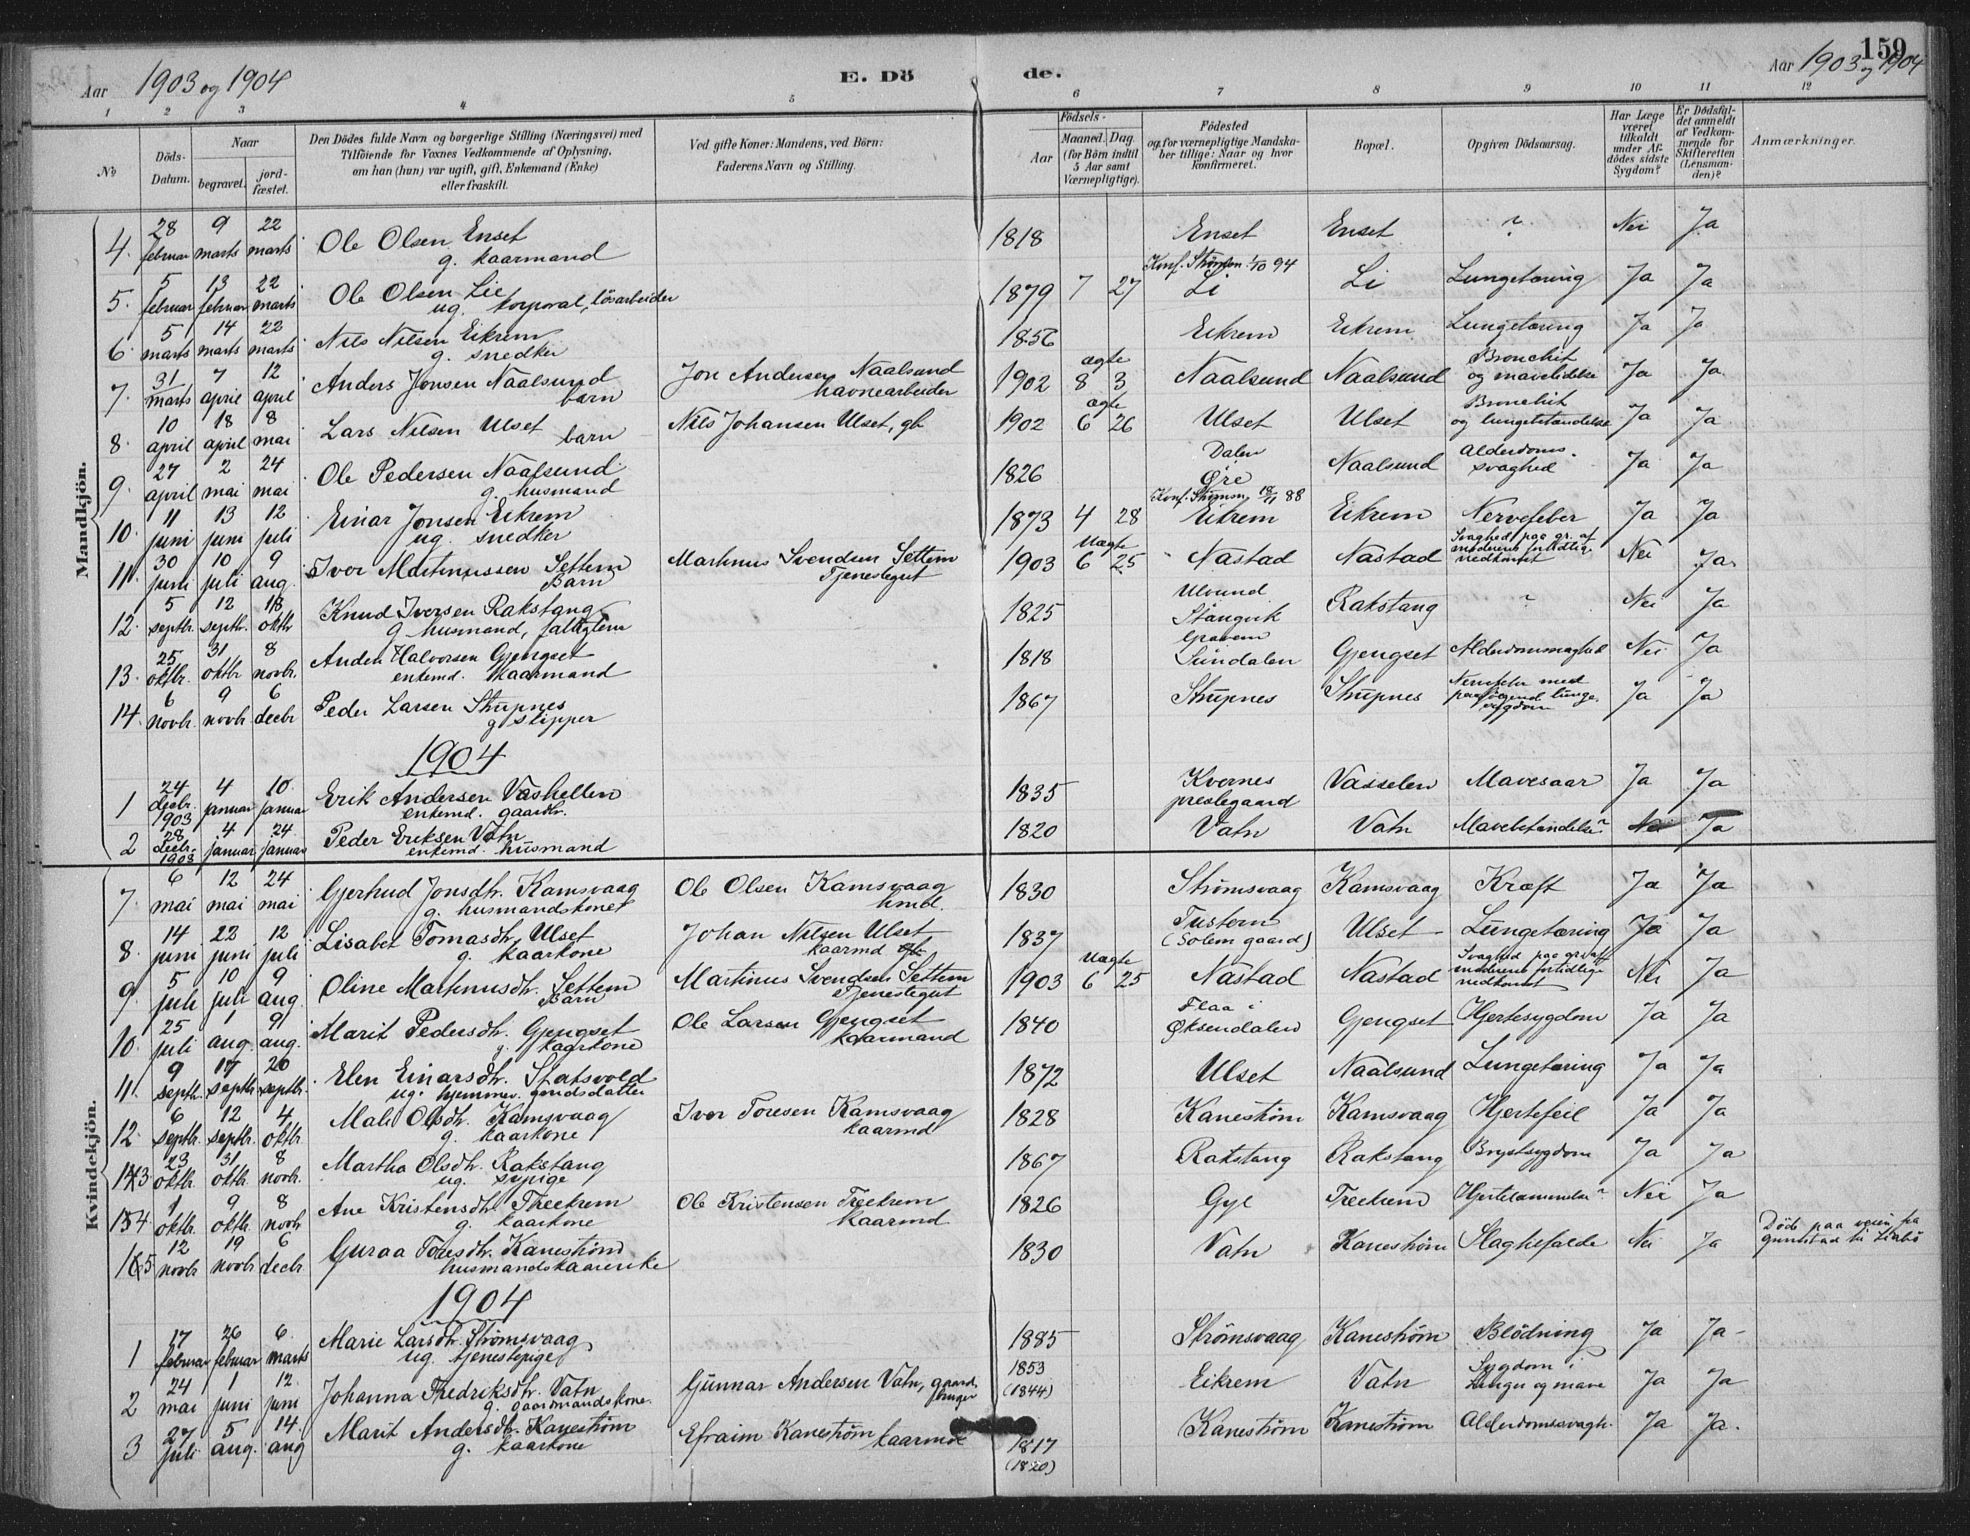 Aar 1903 og 1904
E. Dö
de.
159
Aar 1903 og 1904
1 2 3 4 5 6 7 8 9 10 11 12
No
Döds-Datum.
Naar
begravet.
jord-fæstet.
Den Dödes fulde Navn og borgerlige Stilling (Næringsvei) med
Tilföiende for Voxnes Vedkommende af Oplysning,
om han (hun) var ugift, gift, Enkemand (Enke)
eller fraskilt.
Ved gifte Koner: Mandens, ved Börn:
Faderens Navn og Stilling.
Födsels-
Aar
Maaned. Dag
(for Börn indtil
5 Aar samt
Værnepligtige).
Födested
og for værnepligtige Mandska-
ber tillige: Naar og hvor
konfirmeret.
Bopæl.
Opgiven Dödsaarsag.
Har Læge
været
tilkaldt
under Af-
dödes sidste
Sygdom?
Er Dödsfal-
det anmeldt
af Vedkom-
mende for
Skifteretten
(Lensman-
den)?
Anmærkninger.
Mandkjön.
4. 28 februar 9 marts 22 marts Ole Olsen Enset g. kaarmand 1818 Enset Enset ? Nei Ja
5. 5 februar 13 februar 22 marts Ole Olsen Lie ug. korporal, lösarbeider 1879 7 27 Li Li Lungetæring Ja Ja
6. 5 marts 14 marts 22 marts Nils Nilsen Eikrem g. snedker 1856 Eikrem Eikrem Lungetæring Ja Ja
7. 31 marts 7 april 12 april Anders Jonsen Naalsund barn Jon Andersen Naalsund havnearbeider 1902 ægte 8 3 Naalsund Naalsund Bronchit og mavelidelse Ja Ja
8. 10 april 18 april 8 mai Lars Nilsen Ulset barn Nils Johansen Ulset, gb 1902 ægte 6 26 Ulset Ulset Bronchit og lungebetændelse Ja Ja
9. 27 april 2 mai 24 mai Ole Pedersen Naalsund g. husmand 1826 Dalen Øre Naalsund Alderdoms-svaghed Ja Ja
10. 11 juni 13 juni 12 juli Einar Jonsen Eikrem ug. snedker 1873 4 28 Eikrem Eikrem Nervefeber Ja Ja
11. 30 juni 10 juli 9 aug. Iver Martinussen Settem Barn Martinus Svendsen Settem Tjenestegut 1903 uægte 6 25 Nastad Nastad Svaghed paa gr. af moderens fortidlige nedkomst Nei Ja
12. 5 septbr. 12 septbr. 18 oktbr Knud Iversen Rakstang g. husmand, 1825 Ulvund Stangvik Rakstang ? Nei Ja
13. 25 oktbr. 31 oktbr 8 novbr. Anders Halvorsen Gjengset enkemd. kaarmand 1818 Gravem Sundalen Gjengset Alderdomssvaghed Nei Ja
14. 6 novbr. 9 novbr. 6 decbr Peder Larsen Strupnes g skipper 1867 Strupnes Strupnes med paafölgend lunge-sygdom Ja Ja
1904
1 24 decbr. 1903 4 januar 10 januar Erik Andersen Vashellen enkemd. gaardbr. 1835 Kvernes prestegaard Vasselen Mavesaar Ja Ja
2 28 decbr. 1903 4 januar 24 januar Peder Eriksen Vatn enkemd. husmand 1820 Vatn Vatn Mavebetændelse? Nei Ja
Kvindekjön.
7. 6 mai 12 mai 24 mai Gjertrud Jonsdtr. Kamsvaag g. husmandskone Ole Olsen Kamsvaag hmd. 1830 Strømsvaag Kamsvaag Kræft Ja Ja
8. 14 juni 22 juni 12 juli Lisabet Tomasdtr. Ulset g. kaarkone Johan Nilsen Ulset kaarmd 1837 Tustern (Solem gaard) Ulset Lungetæring Ja Ja
9. 5 juli 10 juli 9 aug. Oline Martinusdtr. Settem Barn Martinus Svendsen Settem Tjenestegut 1903 uægte 6 25 Nastad Nastad Svaghed paa gr. af moderens fortidlige nedkomst Nei Ja
10. 25 juli 1 aug. 9 aug. Marit Pedersdtr. Gjengset g. kaarkone Ole Larsen Gjengset kaarmand 1840 Flaa i Øksendalen Gjengset Hjertesygdom Ja Ja
11. 9 septbr. 17 septbr 20 septbr. Elen Einarsdtr. Statsvold ug. hjemmev. gaardsdatter 1872 Ulset Naalsund Lungetæring Ja Ja
12. 6 septbr. 12 septbr. 4 oktbr Mali Olsdtr. Kamsvaag g. kaarkone Iver Toresen Kamsvaag kaarmd 1828 Kanestrøm Kamsvaag Hjertefeil Ja Ja
13 23 oktbr. 31 oktbr. 8 novbr. Martha Olsdtr. Rakstang ug. sypige 1867 Rakstang Rakstang Brystsygdom Ja Ja
14. 1 oktbr. 9 oktbr. 8 novbr Ane Kristensdtr. Treekrem g. kaarkone Ole Kristensen Treekrem kaarmd 1826 Gyl Treekrem Nei Ja
15 12 novbr 19 novbr 6 decbr Guraa Toresdtr. Kanestrøm husmandskaarenke 1830 Vatn Kanestrøm Slagtilfælde Nei Ja Døde paa veien fra til
1904
1 17 februar 26 februar 6 marts Marie Larsdtr. Strømsvaag ug. tjenestepige 1885 Strømsvaag Kanestrøm Blödning Ja Ja
2 24 mai 1 juni 12 juni Johanna Fredriksdtr. Vatn g. gaardmandskone Gunnar Andersen Vatn, gaardbruger 1853 (1844) Eikrem Vatn Sygdom i lunger og mave Ja Ja
3 27 juli 5 aug. 14 aug Marit Andersdtr. Kanestrøm g. kaarkone Efraim Kanestrøm kaarmd 1817 (1820) Kanestrøm Kanestrøm Alderdomssvagh. Ja Ja.